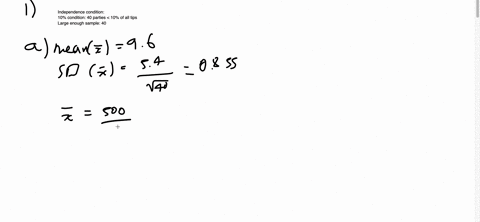 1)
Independence condition:
10% condition: 40 parties < 10% of all tips
Large enough sample: 40
a) mean(x̄) = 9.6
SD (x̄) = 5.4/√40 = 0.855
x̄ = 500/